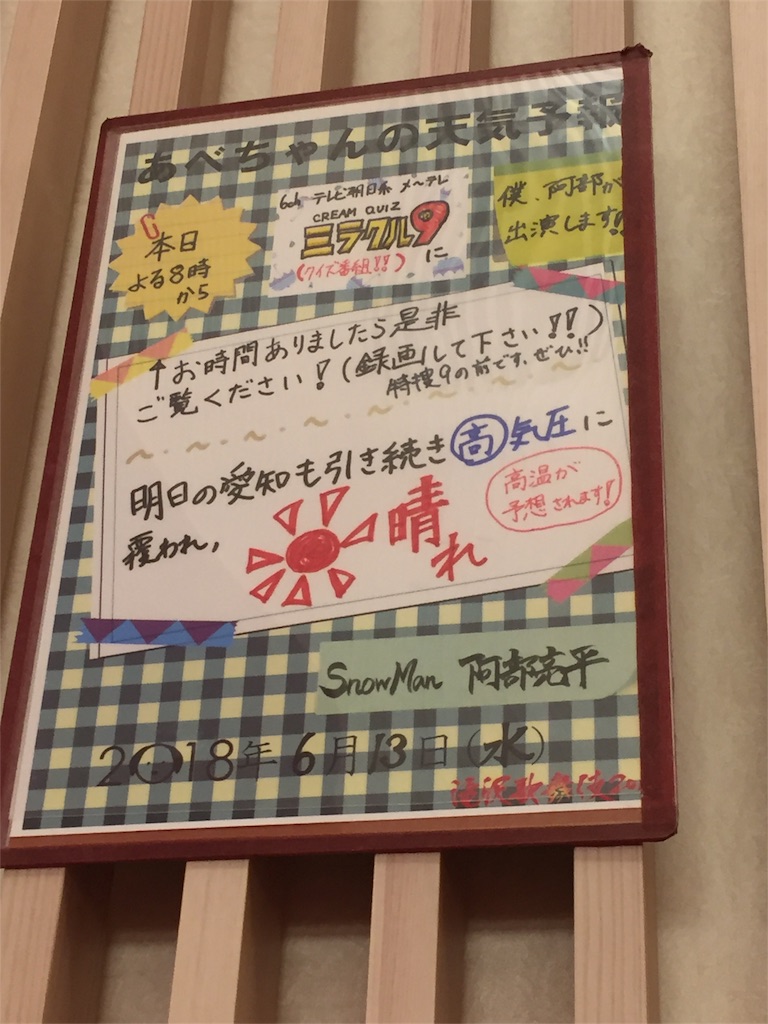 あべちゃんの天気予報
本日
よる8時
から
6ch テレビ朝日系 メ〜テレ
CREAM QUIZ
ミラクル9
(クイズ番組!!)
に
僕、阿部が
出演します!!
↑お時間ありましたら是非
ご覧ください!(録画して下さい!!)
特捜9の前です、ぜひ!!
明日の愛知も引き続き高気圧に
覆われ,
晴れ
高温が
予想されます!
SnowMan 阿部亮平
2018年6月13日(水)
滝沢歌舞伎20